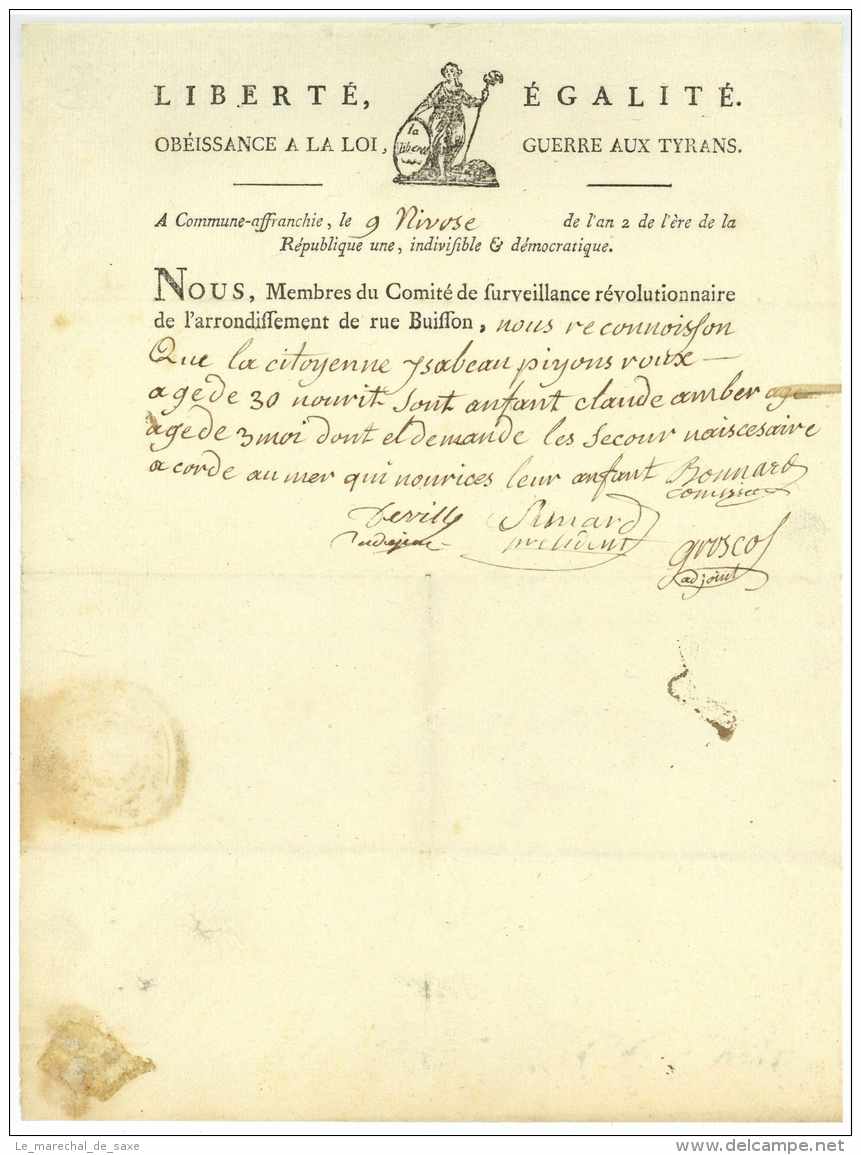 LIBERTÉ, ÉGALITÉ.
la
liberté
OBÉISSANCE A LA LOI, GUERRE AUX TYRANS.
A Commune-affranchie, le 9 Nivose de l'an 2 de l'ère de la
République une, indiviſible & démocratique.
NOUS, Membres du Comité de ſurveillance révolutionnaire
de l'arrondiſſement de rue Buiſſon, nous reconnoiſſon
Que la citoyenne ysabeau piyons roux
agede 30 nourit sont anfant claude amber age
agede 3 moi dont el demande les secour naiscesaire
acorde au mer qui nourices leur anfant Bonnard
Deville Simard
président groscos
adjoint
Le_marechal_de_saxe
delcampe.net